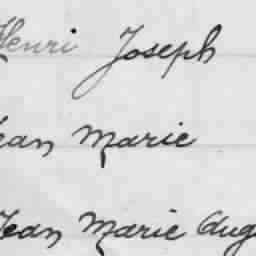 Henri Joseph
Jean Marie
Jean Marie Aug